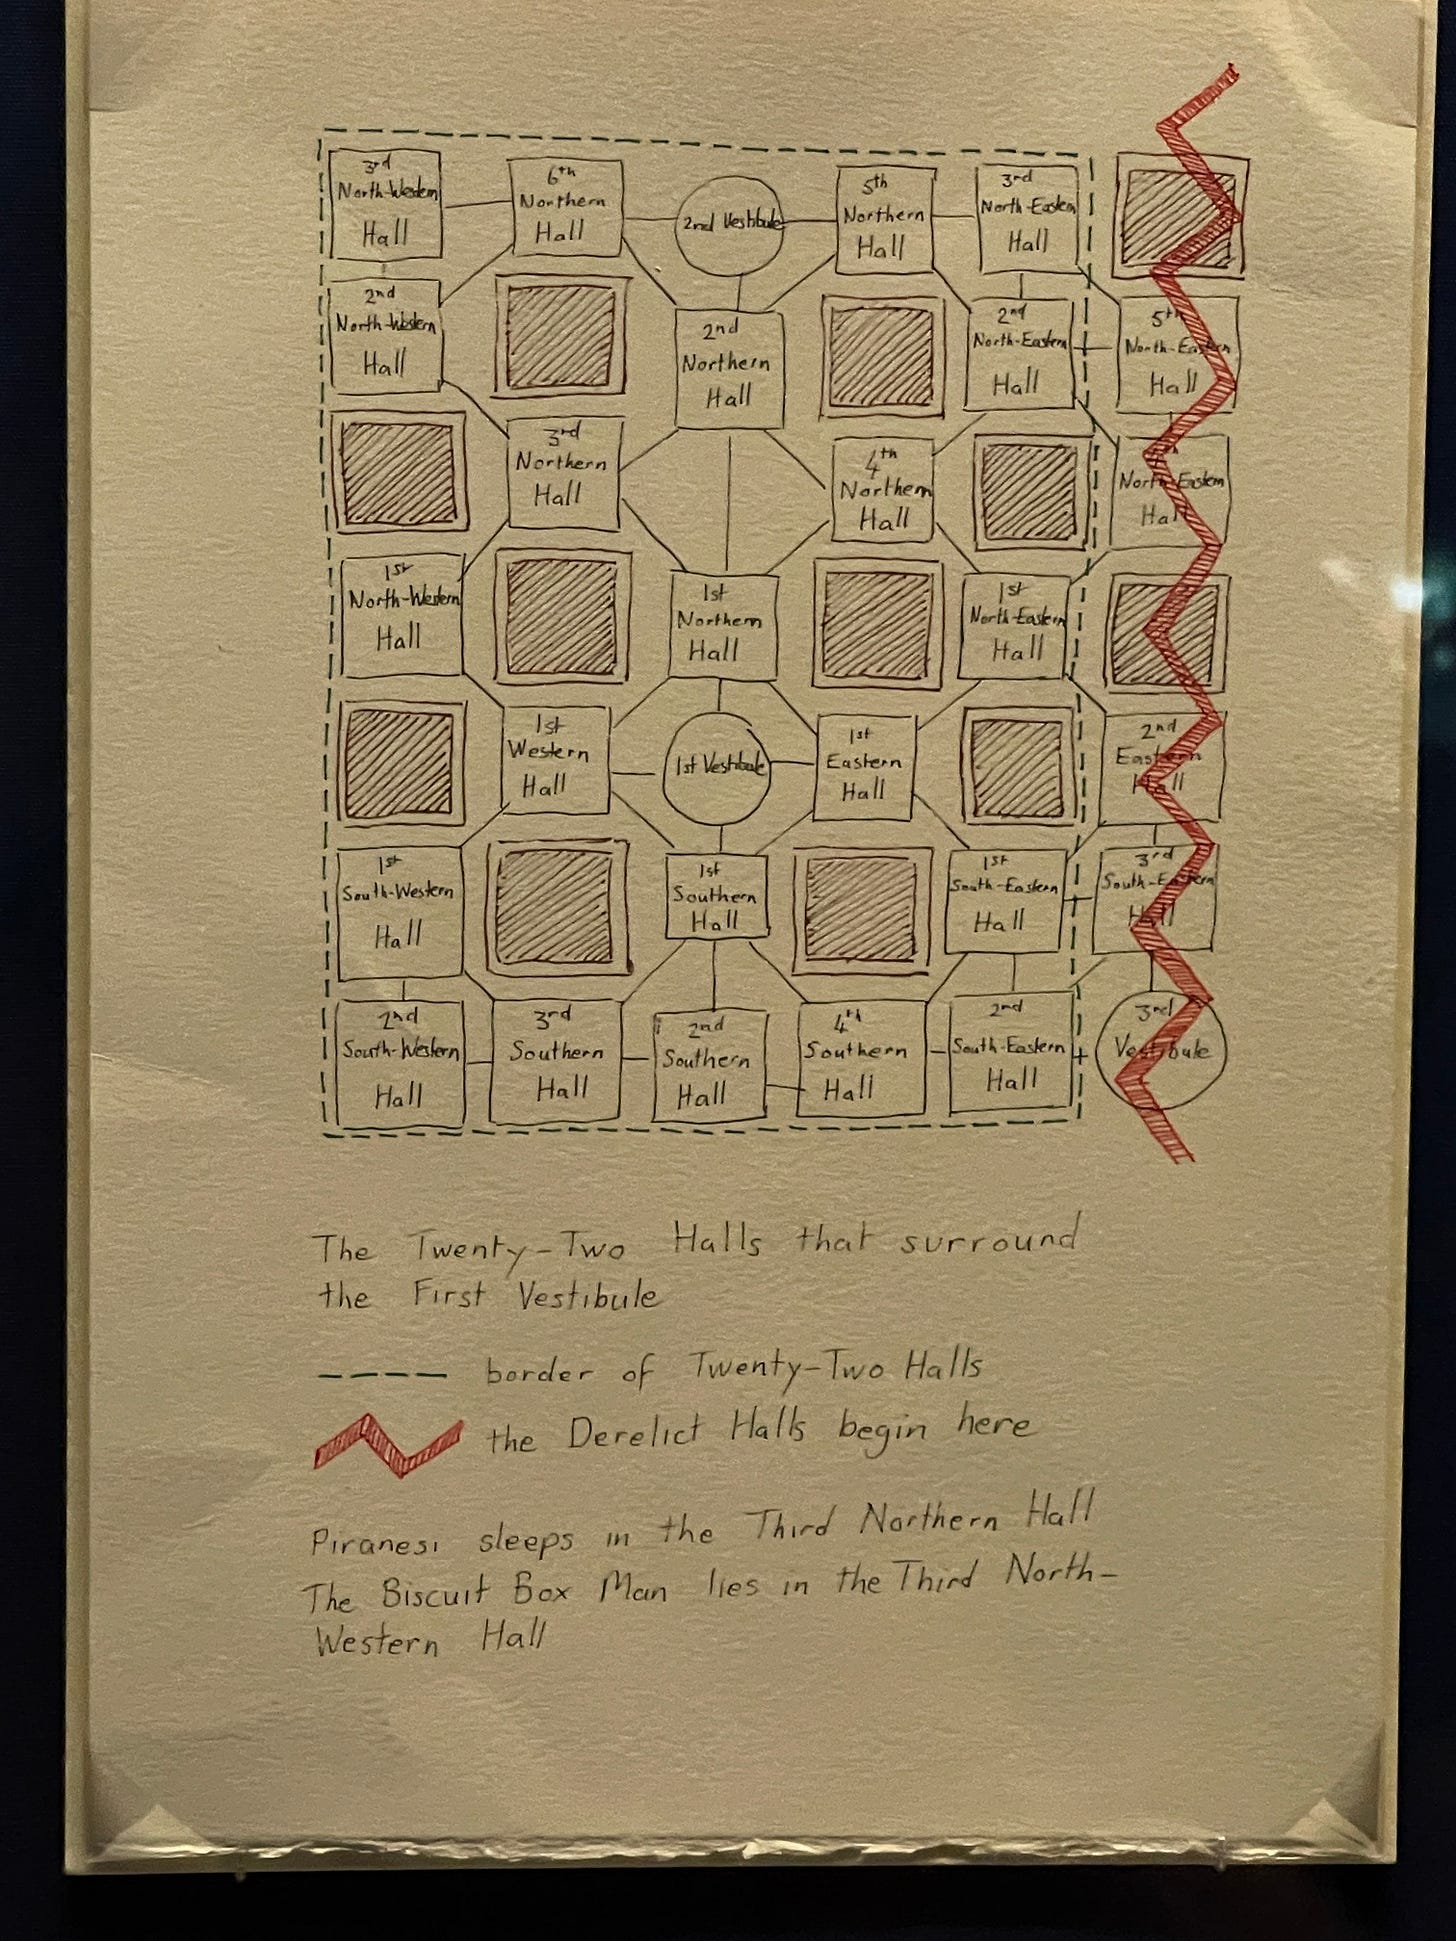 3rd
North-Western
Hall
6th
Northern
Hall
2nd Vestibule
5th
Northern
Hall
3rd
North-Eastern
Hall
2nd
North-Western
Hall
2nd
Northern
Hall
2nd
North-Eastern
Hall
5th
North-Eastern
Hall
3rd
Northern
Hall
4th
Northern
Hall
North-Eastern
Hall
1st
North-Western
Hall
1st
Northern
Hall
1st
North-Eastern
Hall
1st
Western
Hall
1st Vestibule
1st
Eastern
Hall
2nd
Eastern
Hall
1st
South-Western
Hall
1st
Southern
Hall
1st
South-Eastern
Hall
3rd
South-Eastern
Hall
2nd
South-Western
Hall
3rd
Southern
Hall
2nd
Southern
Hall
4th
Southern
Hall
2nd
South-Eastern
Hall
3rd
Vestibule
The Twenty-Two Halls that surround
the First Vestibule
border of Twenty-Two Halls
the Derelict Halls begin here
Piranesi sleeps in the Third Northern Hall
The Biscuit Box Man lies in the Third North-
Western Hall